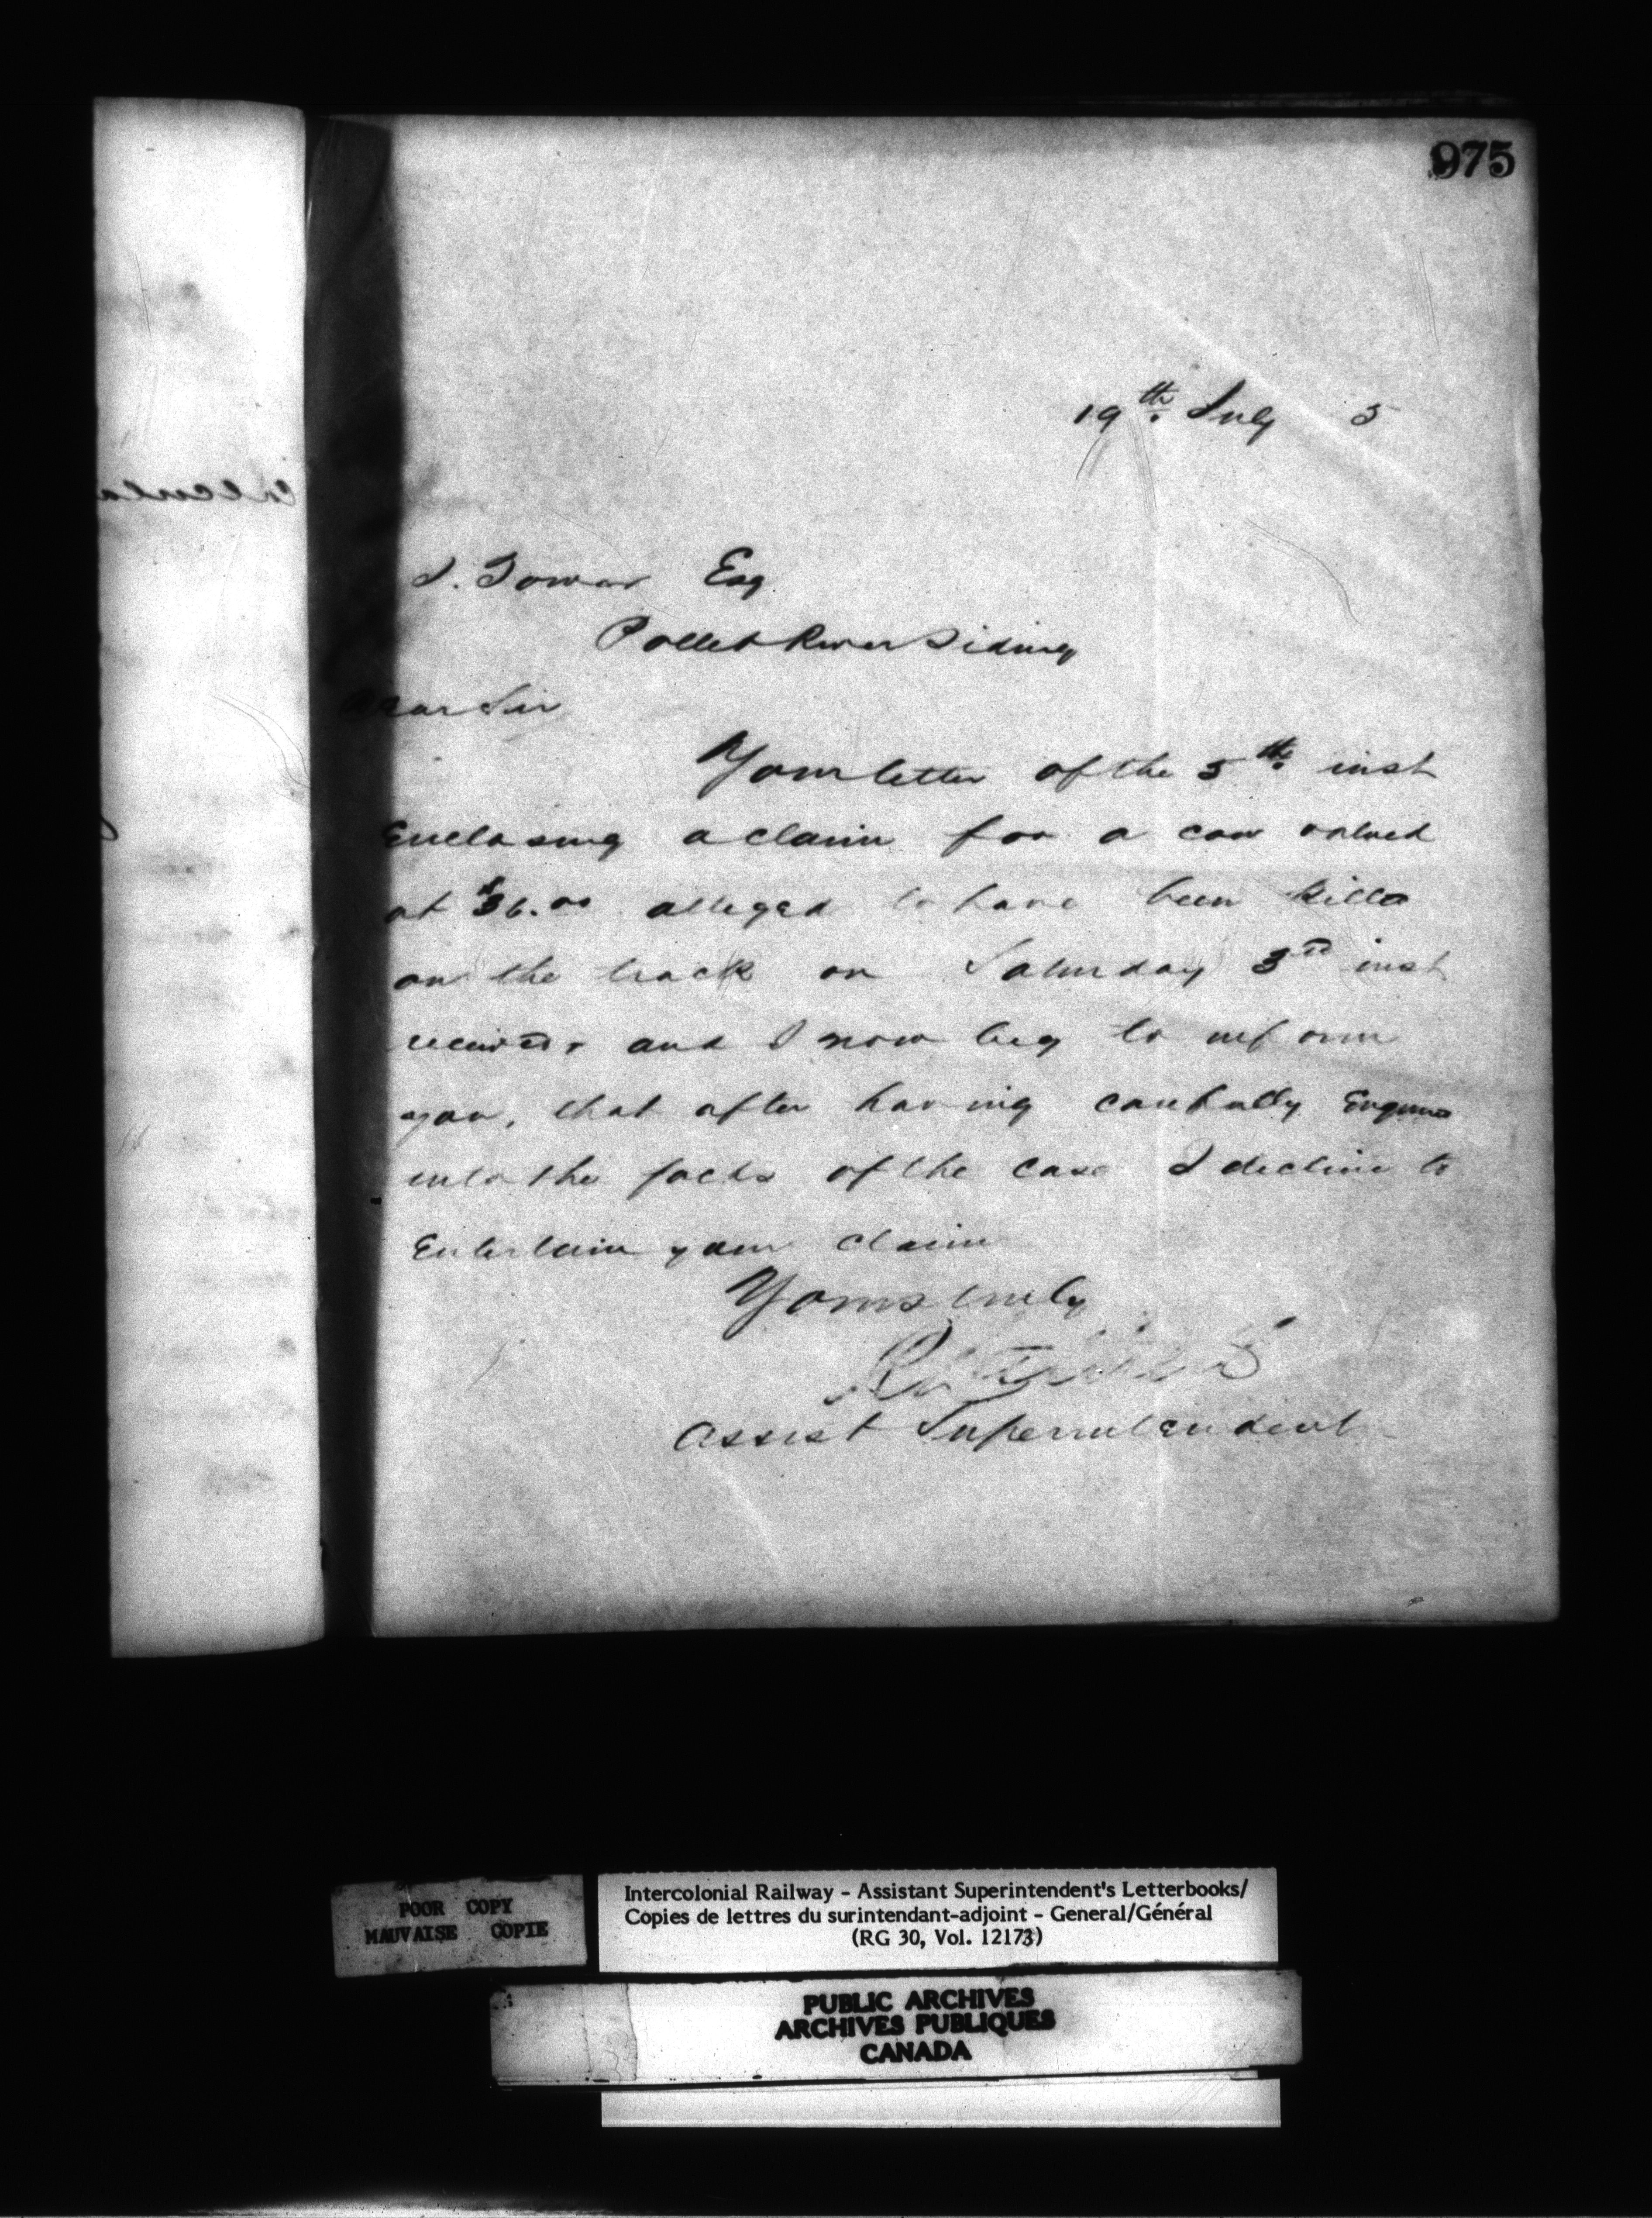 975
19th. July 5
Esq
Pollet River Siding
Dear Sir
Your letter of the 5th. inst
Enclosing a claim for a cow valued
at $36.00 alleged to have been killed
on the track on Saturday 3rd inst
received, and I now beg to inform
you, that after having carefully Enquired
into the facts of the case I decline to
Entertain your claim
Yours truly
Assist Superintendent
POOR COPY
MAUVAISE COPIE
Intercolonial Railway - Assistant Superintendent's Letterbooks/
Copies de lettres du surintendant-adjoint - General/Général
(RG 30, Vol. 12173)
PUBLIC ARCHIVES
ARCHIVES PUBLIQUES
CANADA